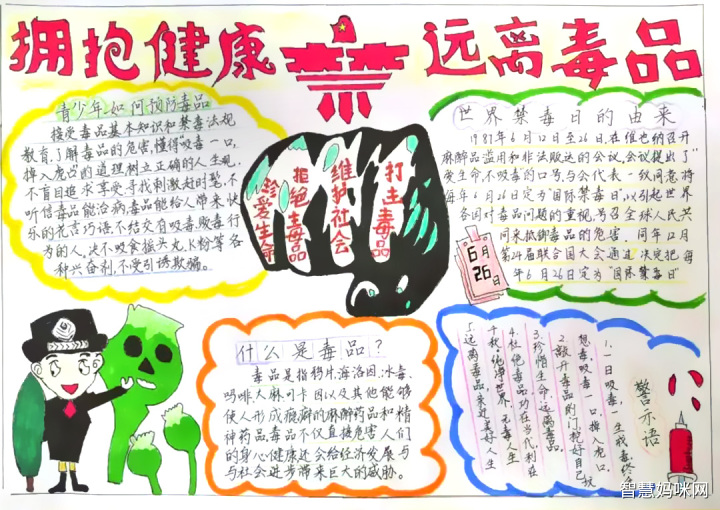 拥抱健康 远离毒品
青少年如何预防毒品
接受毒品基本知识和禁毒法规
教育,了解毒品的危害,懂得吸毒一口,
掉入虎口的道理树立正确的人生观,
不盲目追求享受寻找刺激赶时髦,不
听信毒品能治病毒品能给人带来快
乐的花言巧语,不结交有吸毒贩毒行
为的人,决不吸食摇头丸,K粉等各
种兴奋剂,不受引诱欺骗。
珍爱生命
拒绝毒品
维护社会
打击毒品
世界禁毒日的由来
1987年6月12日至26日,在维也纳召开
麻醉品滥用和非法贩运的会议,会议提出了"
爱生命,不吸毒"的口号,与会代表一致同意将
每年6月26日定为"国际禁毒日",以引起世界
各国对毒品问题的重视,号召全球人民共
同来抵御毒品的危害.同年12月
第42届联合国大会通过决定把每
年6月26日定为"国际禁毒日"
6月
26日
什么是毒品?
毒品是指鸦片,海洛因,冰毒,
吗啡大麻可卡因以及其他能够
使人形成瘾癖的麻醉药品和精
神药品,毒品不仅直接危害人们
的身心健康还会给经济发展与
与社会进步带来巨大的威胁。
警示语
1.一日吸毒,
想毒吸毒一口,掉入虎口,
2.敞开毒品的门,挖好自己坟
3.珍惜生命,远离毒品。
4.杜绝毒品功在当代,利在
5.远离毒品,亲近美好人生
智慧妈咪网